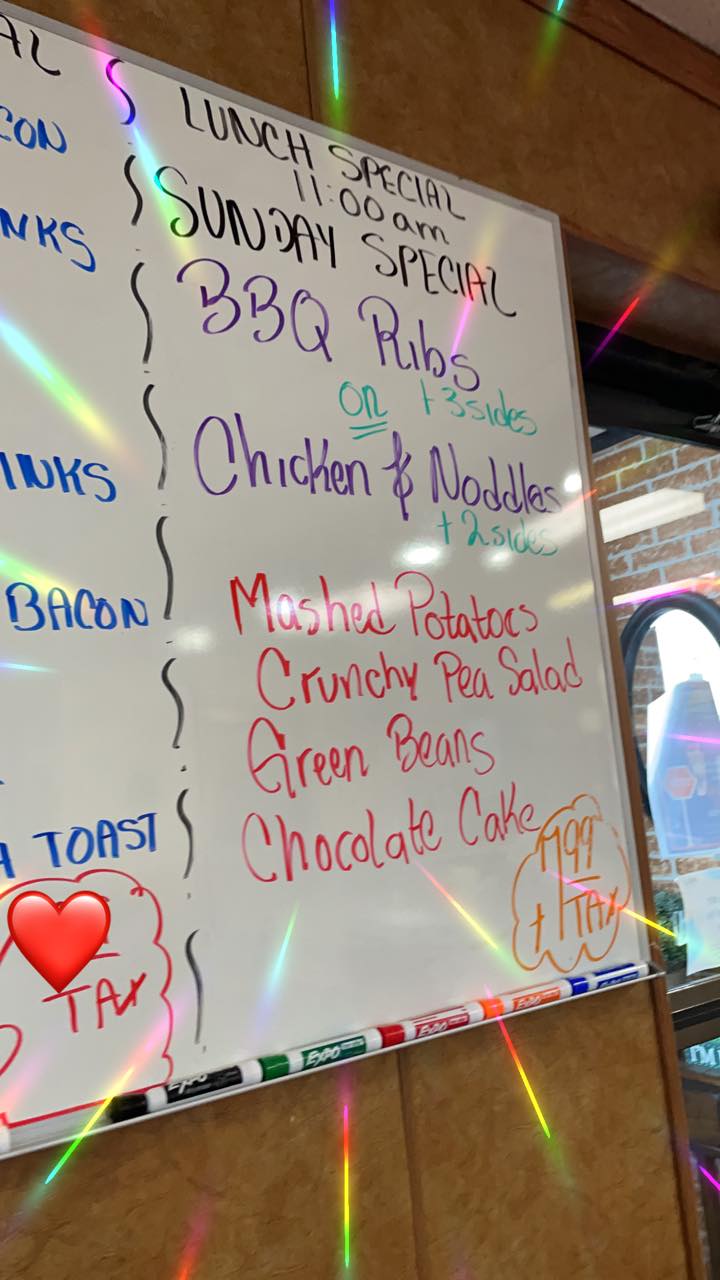 AL
CON
NKS
INKS
BACON
A TOAST
TAX
LUNCH SPECIAL
11:00 am
SUNDAY SPECIAL
BBQ Ribs
OR + 3 sides
Chicken & Noddles
+ 2 sides
Mashed Potatoes
Crunchy Pea Salad
Green Beans
Chocolate Cake
+ TAX
EXPO
EXPO
EXPO
EXPO